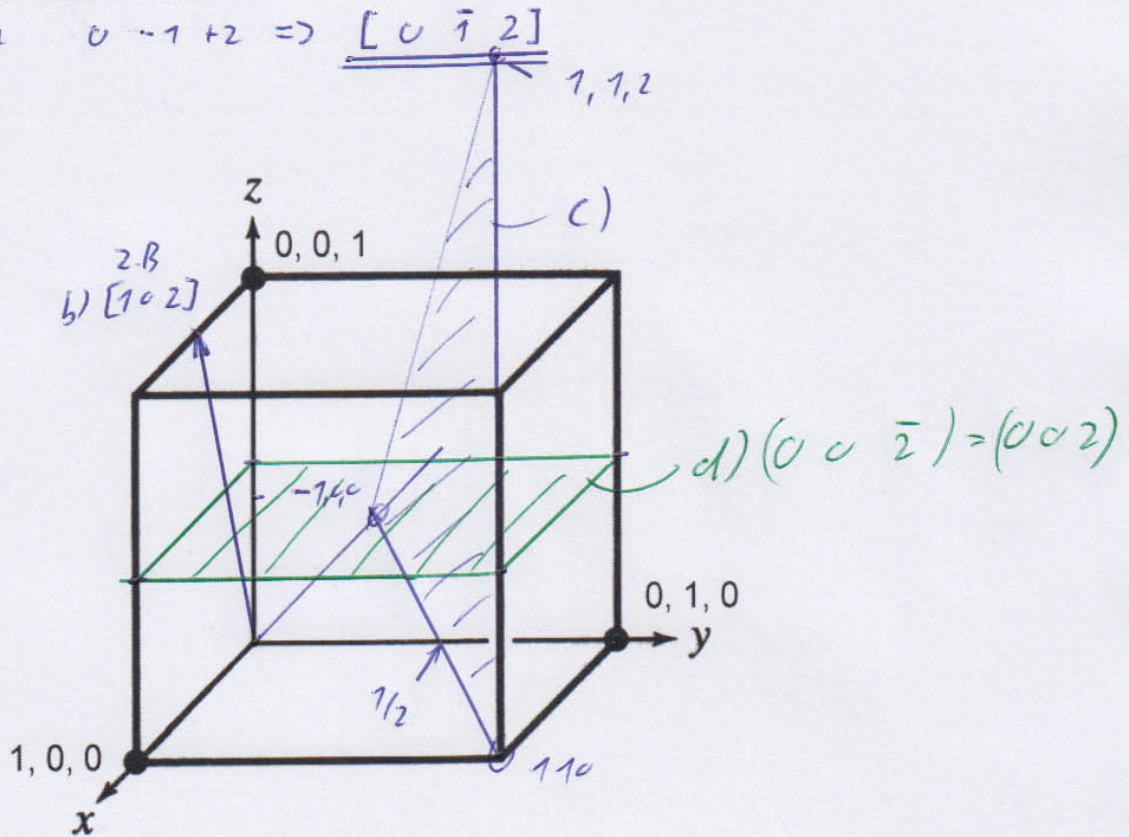 0 -1 +2 => [ 0 1̄ 2 ]
1, 1, 2
z
0, 0, 1
c)
z.B
b) [1 0 2]
d) (0 0 2̄) = (0 0 2)
-1,0,0
0, 1, 0
y
1/2
1, 0, 0
110
x